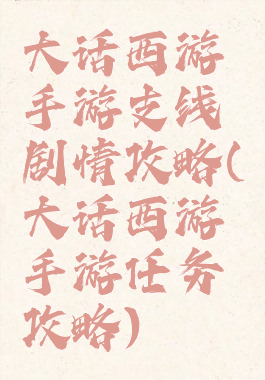 大话西游
手游支线
剧情攻略(
大话西游
手游任务
攻略)